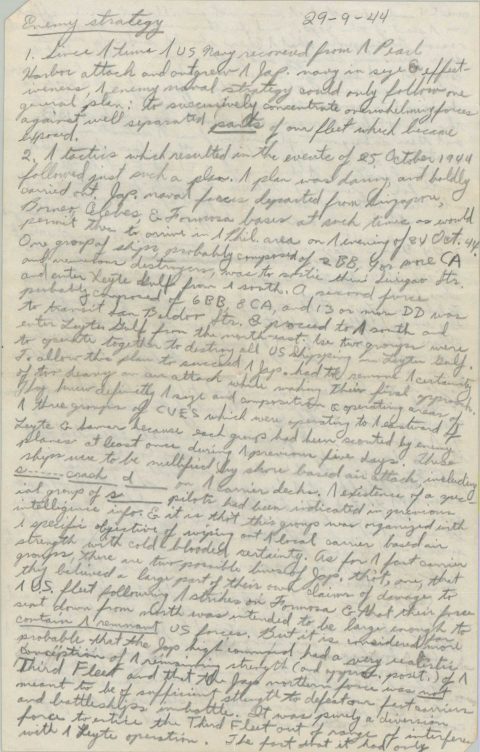 Enemy strategy 29-9-44
1. Since 1 time 1 US Navy recovered from 1 Pearl
Harbor attack and outgrew 1 Jap. navy in size & effect-
iveness, 1 enemy naval strategy could only follow one
general plan: to successively concentrate overwhelming forces
against well separated parts of our fleet which became
exposed.
2. 1 tactics which resulted in the events of 25 October 1944
followed just such a plan. 1 plan was daring, and boldly
carried out. Jap. naval forces departed from Singapore,
Borneo, & Formosa bases at such times as would
permit them to arrive in 1 Phil. area on 1 evening of 24 Oct. 44.
One group of ships, probably composed of 2 BB, 4 or more CA
and numerous destroyers, was to sortie thru Surigao Str.
and enter Leyte Gulf from 1 south. A second force
probably composed of 6 BB, 8 CA, and 13 or more DD was
to transit San Str. & proceed to 1 south and
enter Leyte Gulf from the northeast. The two groups were
to operate together to destroy all US shipping in Leyte Gulf.
To allow this plan to succeed 1 Jap. had to remove 1 certainty
of too heavy an air attack while making their final approach.
They knew definitely 1 size and composition & operating areas of
1 three groups of CVES which were operating to 1 eastward of
Leyte & Samar because each group had been scouted by enemy
planes at least once during 1 previous few days. These
ships were to be nullified by shore based air attack, including
crash d on 1 carrier decks. 1 existence of a spec-
ial group of s pilots had been indicated in previous
intelligence info. & it is that this group was organized with
1 specific objective of wiping out 1 local carrier based air
strength with cold blooded certainty. As for 1 fast carrier
groups, there are two possible lines of Jap. thot, one, that
they believed a large part of their own claims of damage to
1 U.S. fleet following 1 strikes on Formosa & that their force
sent down from north was intended to be large enough to
contain 1 remnant US forces. But it is considered more
probable that the Jap high command had a very realistic
conception of 1 remaining strength (and approx. posit.) of 1
Third Fleet and that the Jap northern force was not
meant to be of sufficient strength to defeat our fast carriers
and battleships in battle. It was purely a diversion
force to entice the Third Fleet out of range of interference
with 1 Leyte operation. The fact that it had only